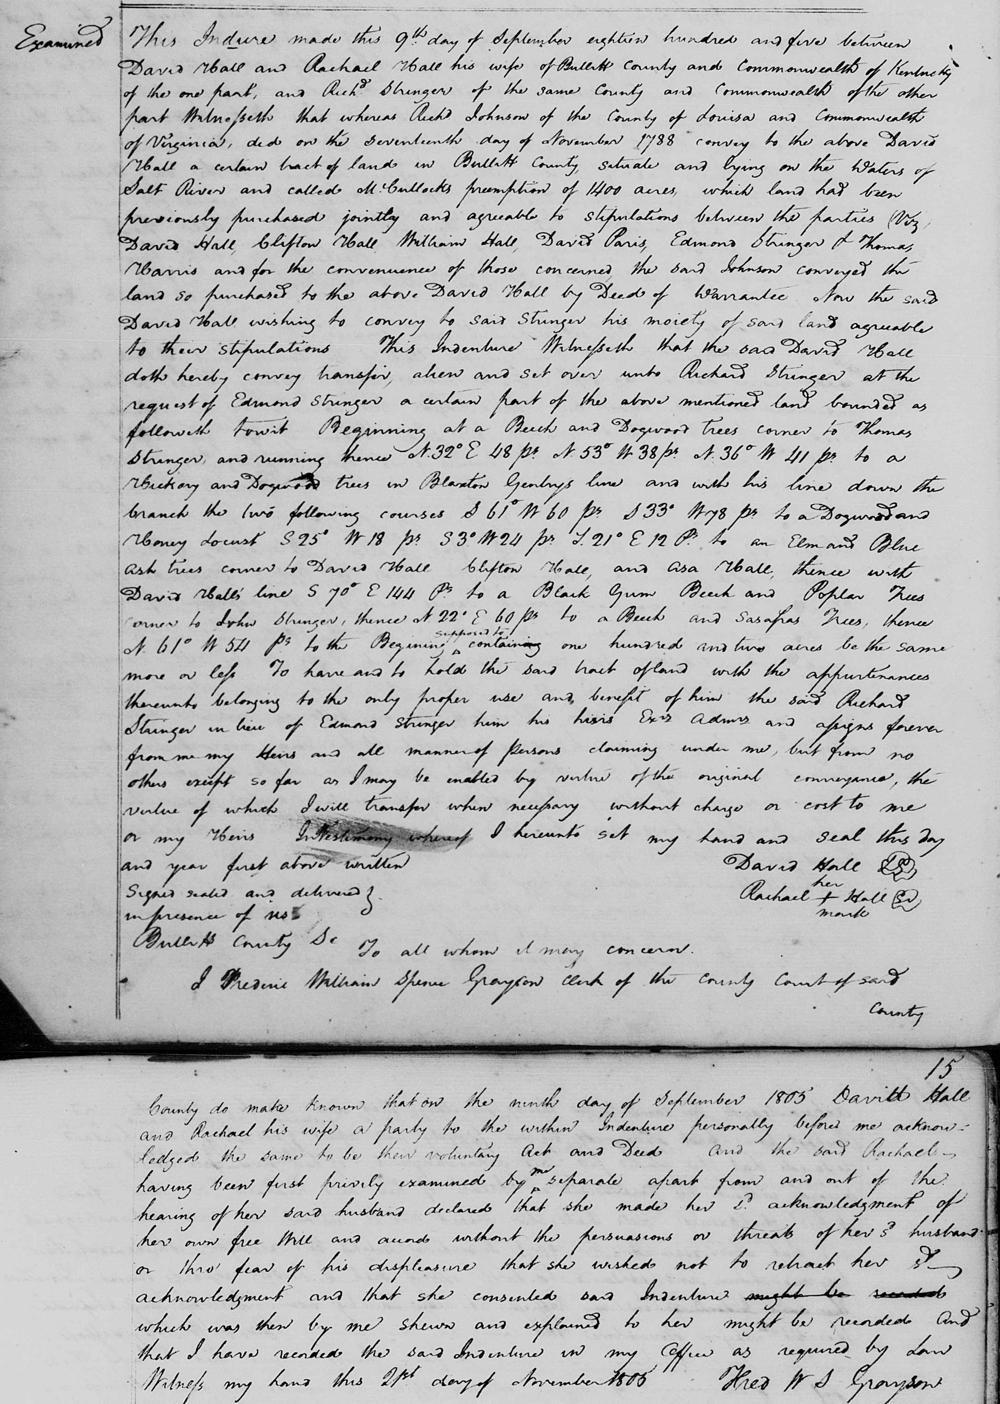 Examined
This Indure made this 9th day of September eighteen hundred and five between
David Hall and Rachael Hall his wife of Bullitt County and Commonwealth of Kentucky
of the one part, and Richd Stringer of the same County and Commonwealth of the other
part Witnesseth that whereas Richd Johnson of the County of Louisa and Commonwealth
of Virginia, did on the seventeenth day of November 1788 convey to the above David
Hall a certain tract of land in Bullitt County, situate and lying on the Waters of
Salt River and called McCullocks preemption of 1400 acres, which land had been
previously purchased jointly and agreeable to stipulations between the parties (Viz,
David Hall, Clifton Hall William Hall, David Paris, Edmond Stringer & Thomas
Harris and for the convenuence of those concerned the said Johnson conveyed the
land so purchased to the above David Hall by Deed of Warrantee Now the said
David Hall wishing to convey to said Stringer his moiety of said land agreeable
to their stipulations This Indenture Witnesseth that the said David Hall
doth hereby convey transfer, alien and set over unto Richard Stringer at the
request of Edmond Stringer a certain part of the above mentioned land bounded as
followeth towit Beginning at a Beech and Dogwood trees corner to Thomas
Stringer, and running thence N. 32° E 48 ps N 53° W 38 ps N. 36° W 41 ps to a
Hickory and Dogwood trees in Blaxton Gentrys line and with his line down the
branch the two following courses S 61° W 60 ps S 33° W 78 ps to a Dogwood and
Honey Locust S 25° W 18 ps S 3° W 24 ps S. 21° E 12 Ps to an Elm and Blue
Ash trees corner to David Hall Clifton Hall, and Asa Hall, thence with
David Halls line S 70° E 144 Ps to a Black Gum Beech and Poplar Trees
corner to John Stringer, thence N 22° E 60 ps to a Beech and Sasafras Trees, thence
N. 61° W 54 ps to the Begining supposed to containing one hundred and two acres be the same
more or less To have and to hold the said tract of land with the appurtenances
thereunto belonging to the only proper use and benefit of him the said Richard
Stringer in lieu of Edmond Stringer him his heirs Exrs Admrs and assigns forever
from me my Heirs and all manner of persons claiming under me, but from no
others except so far as I may be enabled by virtue of the original conveyance, the
virtue of which I will transfer when necessary without charge or cost to me
or my Heirs In Testimony whereof I hereunto set my hand and seal this day
and year first above written David Hall LS
Signed sealed and delivered } her
in presence of us Rachael + Hall
mark
Bullitt County Sc To all whom it may concern.
I Frederic William Spence Grayson Clerk of the County Court of said
County
15
County do make known that on the ninth day of September 1805 Davitt Hall
and Rachael his wife a party to the within Indenture personally before me acknow-
ledged the same to be their voluntary Act and Deed And the said Rachael
having been first privily examined by me separate apart from and out of the
hearing of her said husband declared that she made her sd acknowledgment of
her own free Will and accord without the persuasions or threats of her sd husband
or thro' fear of his displeasure that she wished not to retract her sd
acknowledgment and that she consented said Indenture might be recorded
which was then by me shewn and explained to her might be recorded And
that I have recorded the said Indenture in my Office as required by Law
Witness my hand this 21st day of November 1805 Fred W S Grayson